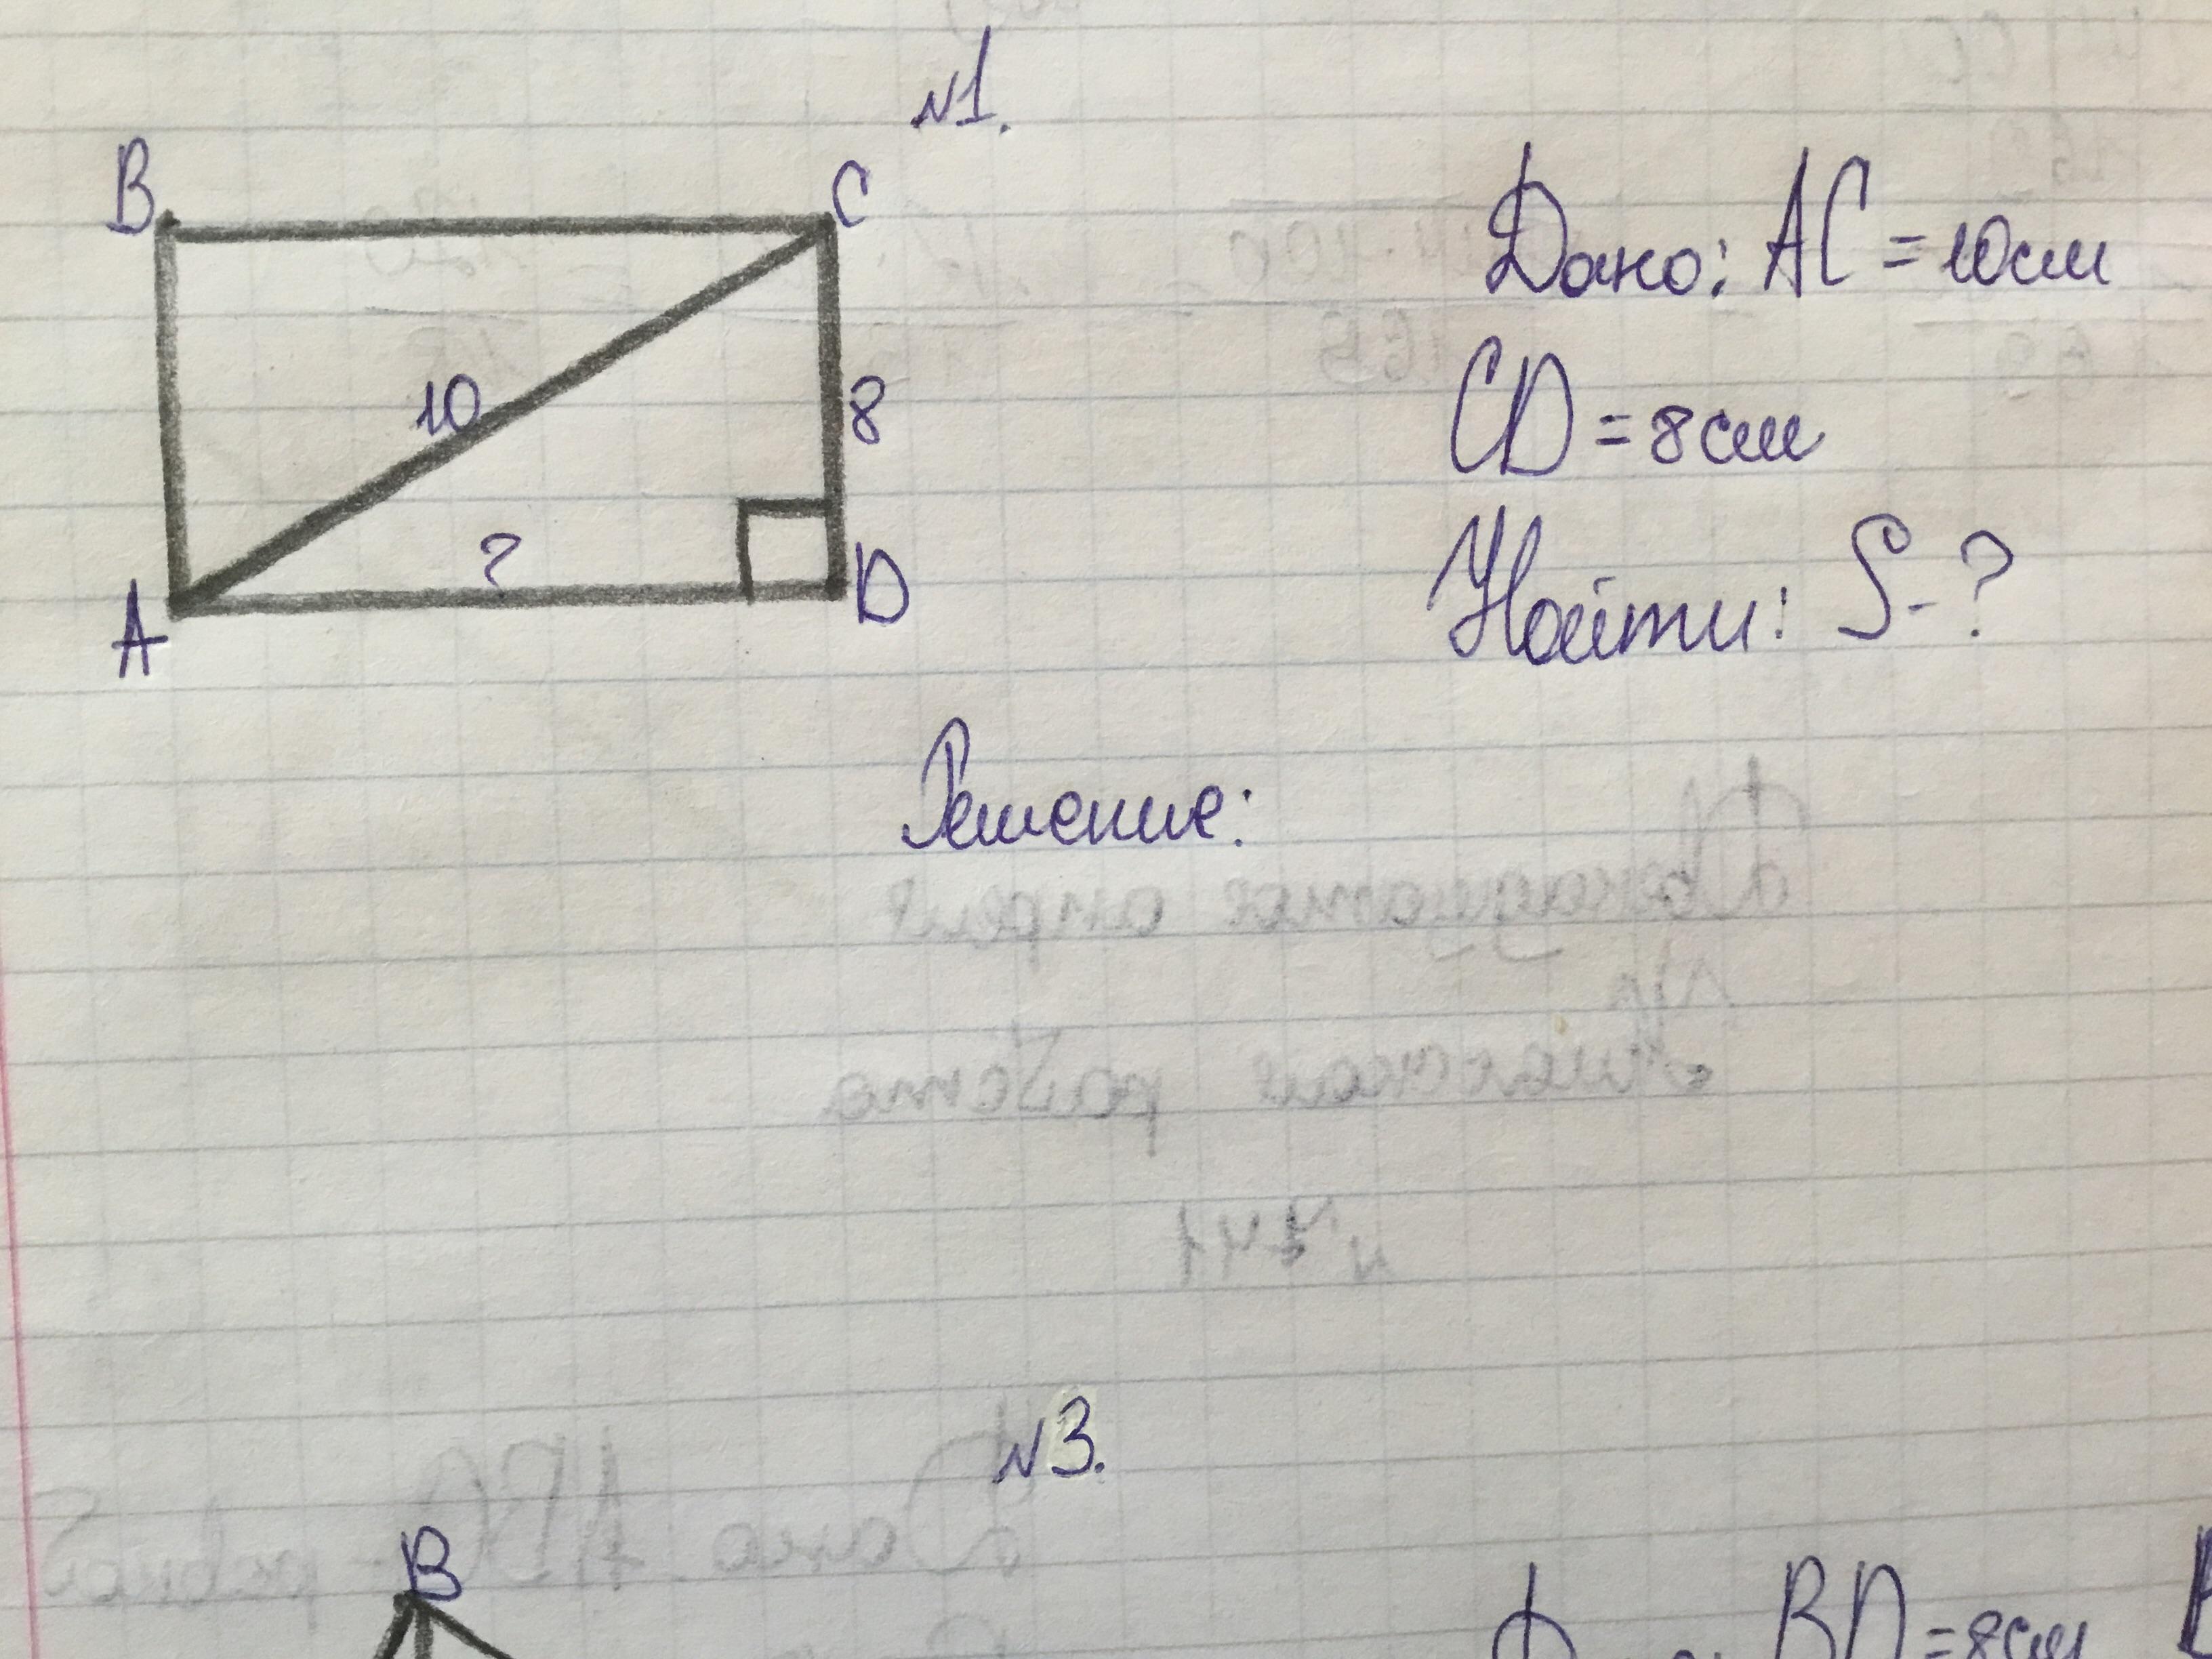 №1.
B
C
Дано: AC = 10см
10
8
CD = 8см
?
A
D
Найти: S-?
Решение:
№3.
B
BD = 8см